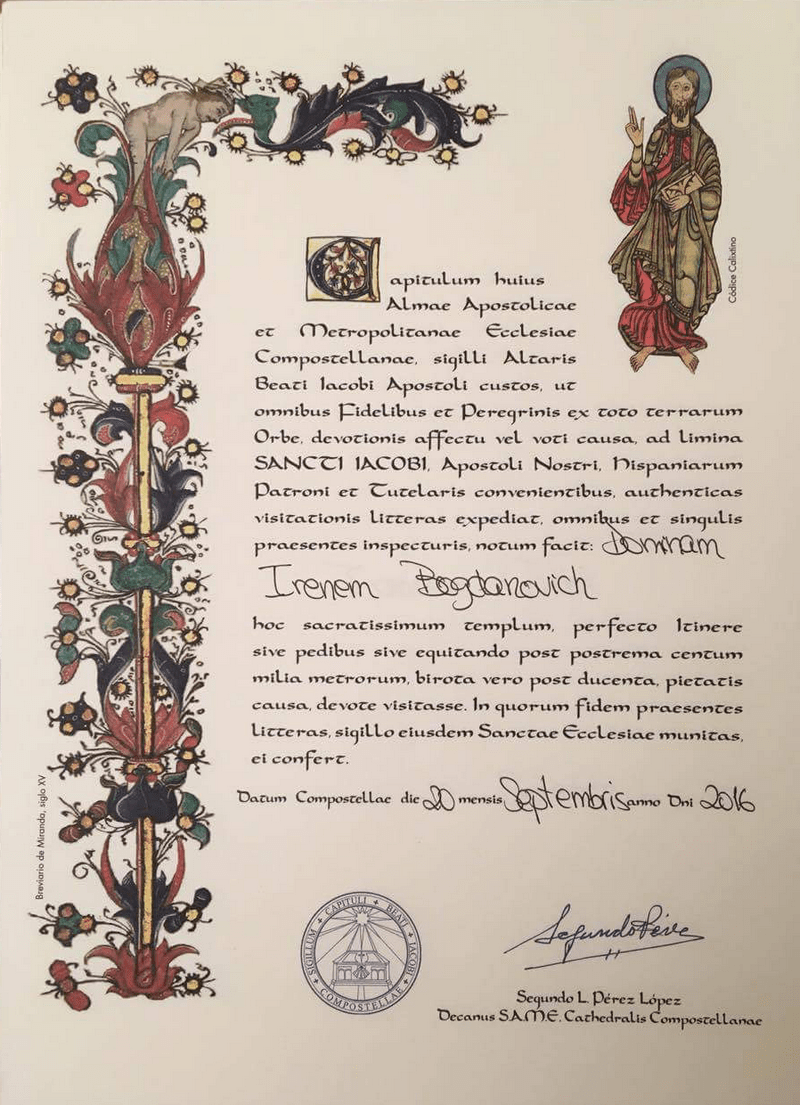 Códice Calixtino
Capitulum huius
Almae Apostolicae
et Metropolitanae Ecclesiae
Compostellanae, sigilli Altaris
Beati Iacobi Apostoli custos, ut
omnibus Fidelibus et Peregrinis ex toto terrarum
Orbe, devotionis affectu vel voti causa, ad limina
SANCTI IACOBI, Apostoli Nostri, Hispaniarum
Patroni et Tutelaris convenientibus, authenticas
visitationis litteras expediat, omnibus et singulis
praesentes inspecturis, notum facit: Dominam
Irenem Bogdanovich
hoc sacratissimum templum, perfecto Itinere
sive pedibus sive equitando post postrema centum
milia metrorum, birota vero post ducenta, pietatis
causa, devote visitasse. In quorum fidem praesentes
litteras, sigillo eiusdem Sanctae Ecclesiae munitas,
ei confert.
Datum Compostellae die 20 mensis Septembris anno Dni 2016
Breviario de Miranda, siglo XV
SIGILLUM + CAPITULI + BEATI + IACOBI + COMPOSTELLAE +
Segundo Pérez
Segundo L. Pérez López
Decanus S.A.M.E. Cathedralis Compostellanae